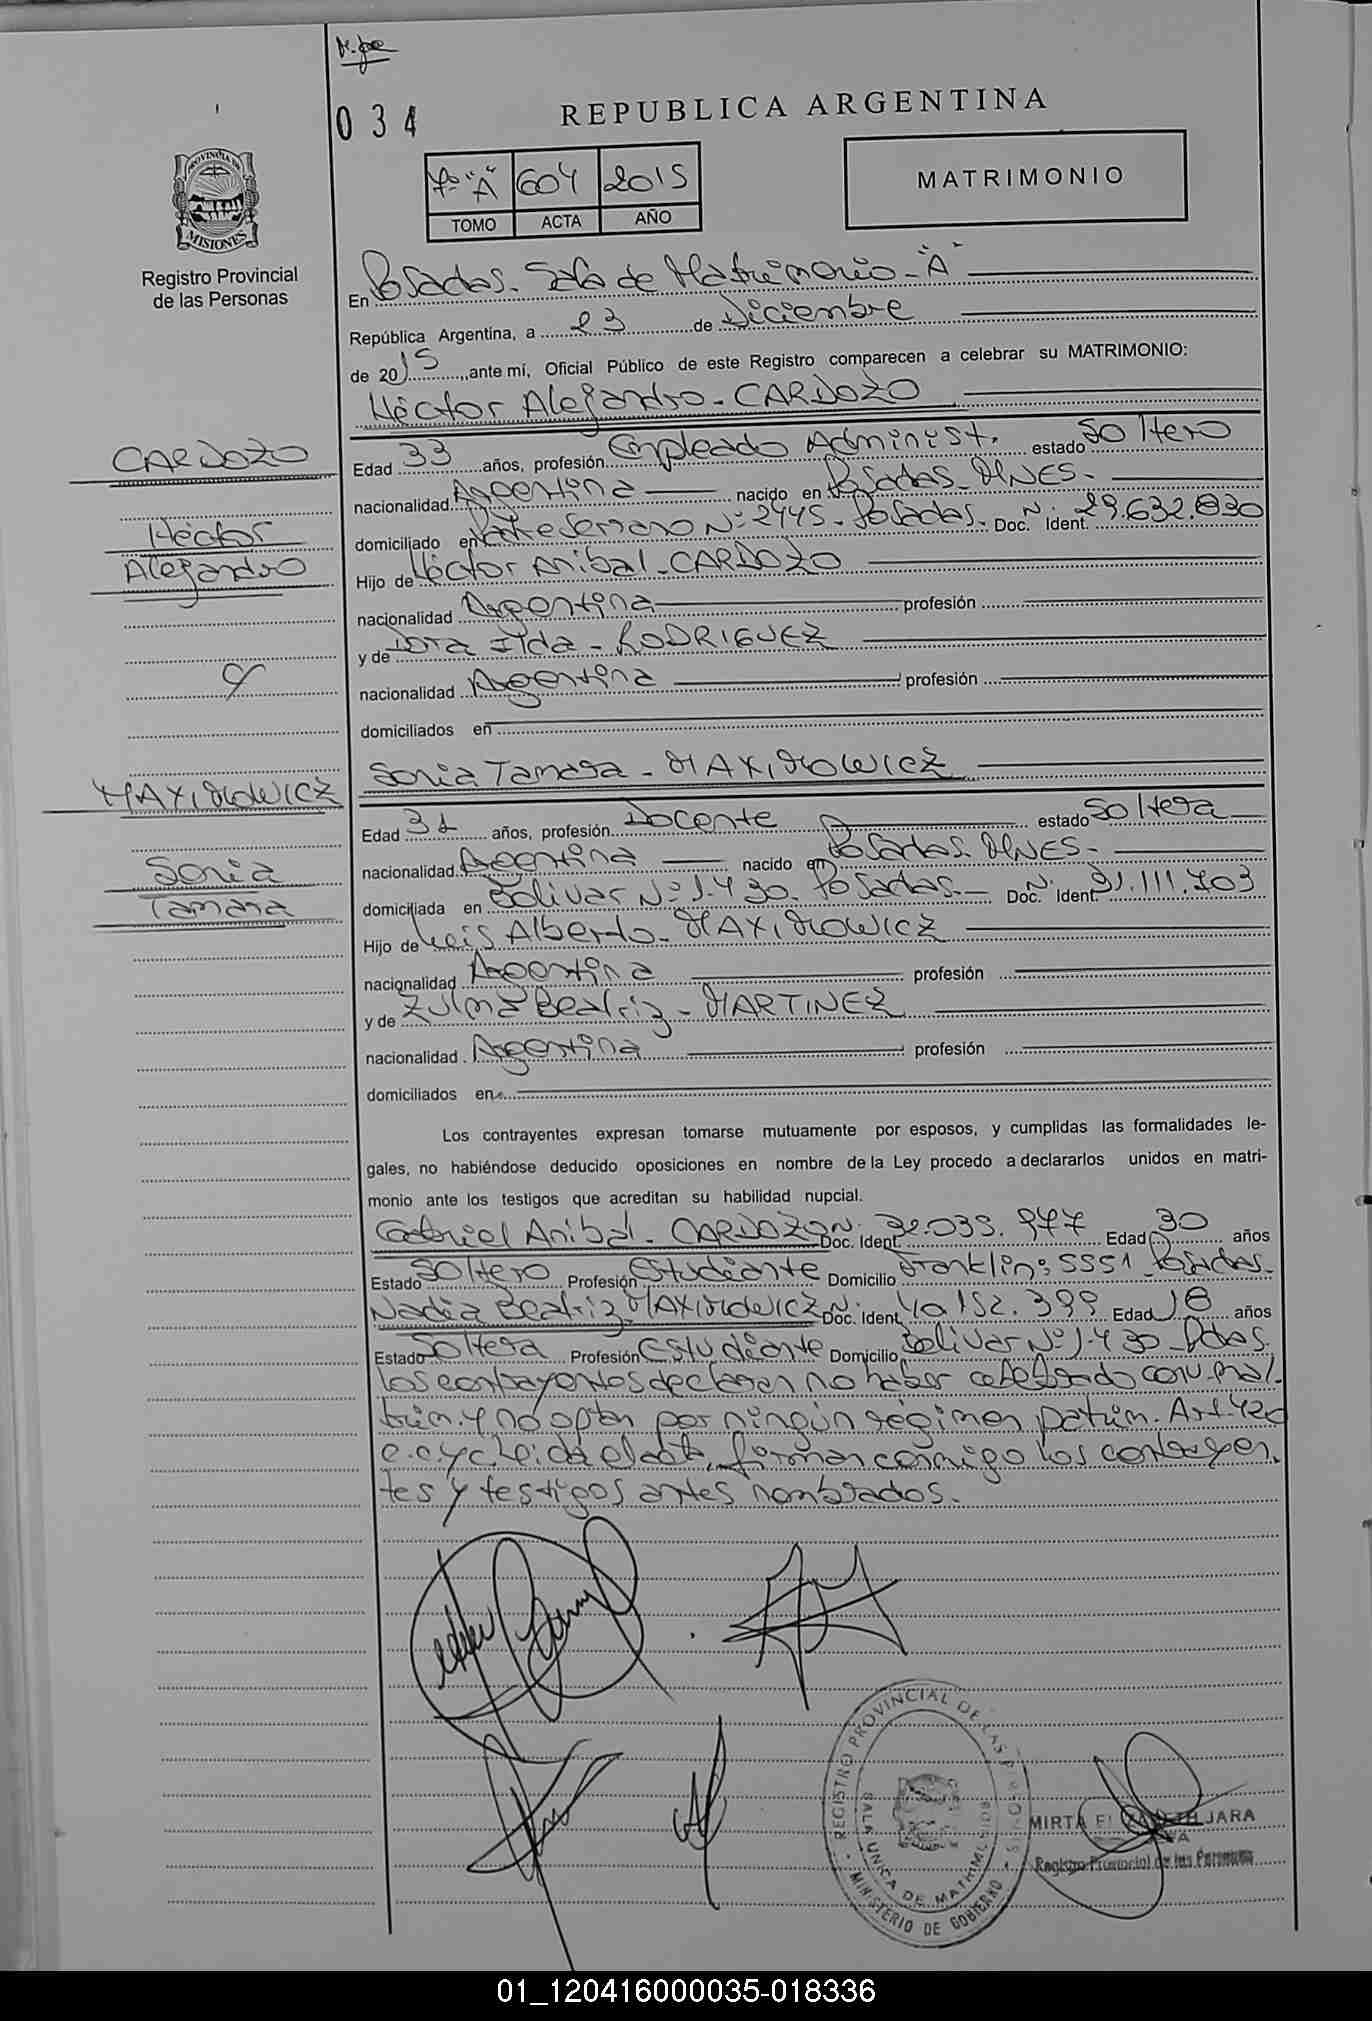 034
REPUBLICA ARGENTINA
MATRIMONIO
7º "A" 604 2015
TOMO ACTA AÑO
PROVINCIA DE MISIONES
Registro Provincial
de las Personas
En Posadas. Sala de Matrimonio - "A"
República Argentina, a 23 de Diciembre
de 2015, ante mí, Oficial Público de este Registro comparecen a celebrar su MATRIMONIO:
Héctor Alejandro - CARDOZO
CARDOZO
Héctor
Alejandro
Edad 33 años, profesión Empleado Administ. estado Soltero
nacionalidad Argentina nacido en Posadas - MNES.
domiciliado en Padre Serrano Nº 2445 - Posadas. Doc. Ident. Nº 29.632.830
Hijo de Héctor Anibal - CARDOZO
nacionalidad Argentina profesión
y de Dora Ilda - RODRIGUEZ
nacionalidad Argentina profesión
domiciliados en
y
MAXIMOWICZ
Sonia
Tamara
Sonia Tamara - MAXIMOWICZ
Edad 31 años, profesión Docente estado Soltera
nacionalidad Argentina nacido en Posadas. MNES -
domiciliada en Bolivar Nº 1.430. Posadas. Doc. Ident. Nº 31.111.703
Hijo de Luis Alberto - MAXIMOWICZ
nacionalidad Argentina profesión
y de Zulma Beatriz - MARTINEZ
nacionalidad Argentina profesión
domiciliados en
Los contrayentes expresan tomarse mutuamente por esposos, y cumplidas las formalidades le-
gales, no habiéndose deducido oposiciones en nombre de la Ley procedo a declararlos unidos en matri-
monio ante los testigos que acreditan su habilidad nupcial.
Gabriel Anibal - CARDOZO Doc. Ident. Nº 32.039.977 Edad 30 años
Estado Soltero Profesión Estudiante Domicilio Franklin: 5551 Posadas.
Nadia Beatriz MAXIMOWICZ Doc. Ident. Nº 40.152.399 Edad 18 años
Estado Soltera Profesión Estudiante Domicilio Bolivar Nº 1.430 - Pdas.
los contrayentes declaran no haber celebrado conv. mal-
trim. y no optan por ningún régimen patrim. Art. 420
c.c.y c. Leida el acta, firman conmigo los contrayen-
tes y testigos antes nombrados.
REGISTRO PROVINCIAL DE LAS PERSONAS
SALA UNICA DE MATRIMONIOS
MINISTERIO DE GOBIERNO
MIRTA ELIZABETH JARA
Registro Provincial de las Personas
01_120416000035-018336